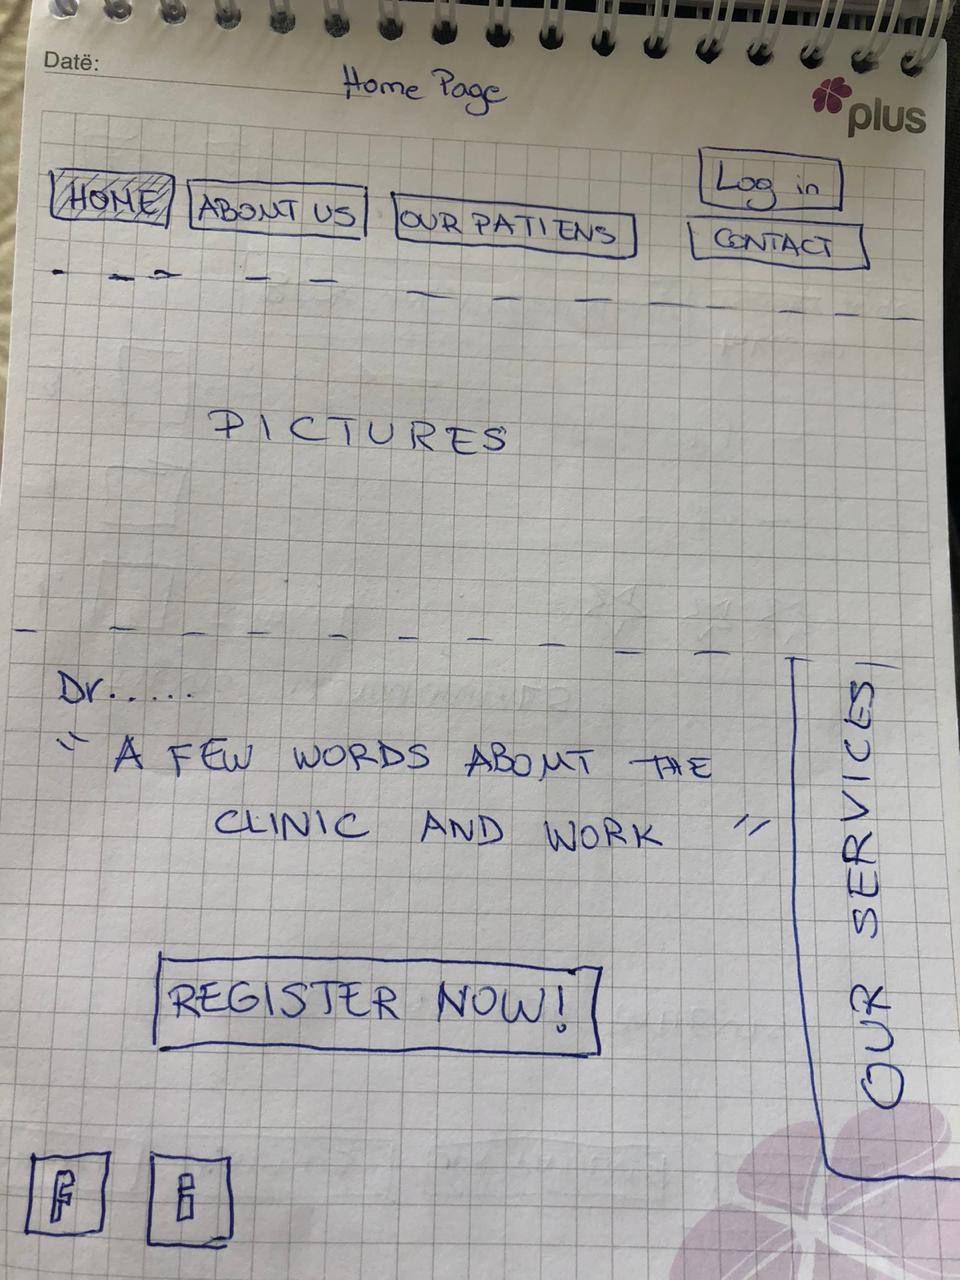 Datë:
Home Page
plus
Log in
HOME
ABOUT US
OUR PATIENS
CONTACT
PICTURES
Dr.....
" A FEW WORDS ABOUT THE
CLINIC AND WORK "
OUR SERVICES
REGISTER NOW!
F
i